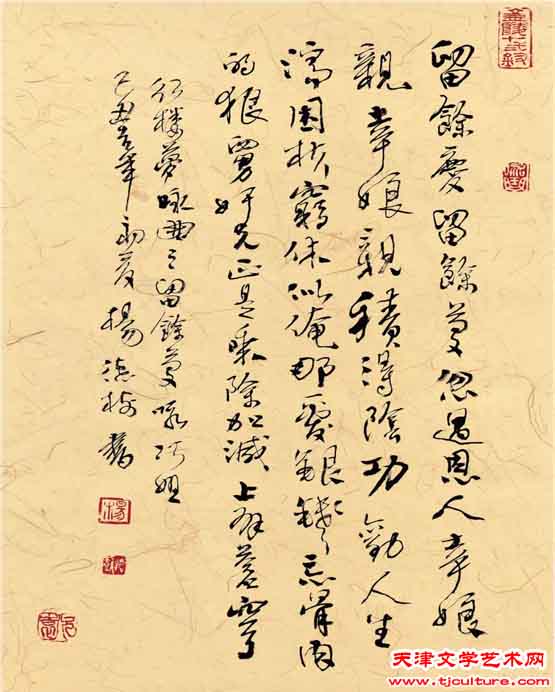 金陵十二釵
留餘慶留餘慶忽遇恩人幸娘
親幸娘親積得陰功勸人生
濟困扶窮休似俺那愛銀錢忘骨肉
的狠舅奸兄正是乘除加減上有蒼穹
紅樓夢咏曲之留餘慶 咏巧姐
己丑年初夏 楊 書
楊
天津文学艺术网
www.tjculture.com